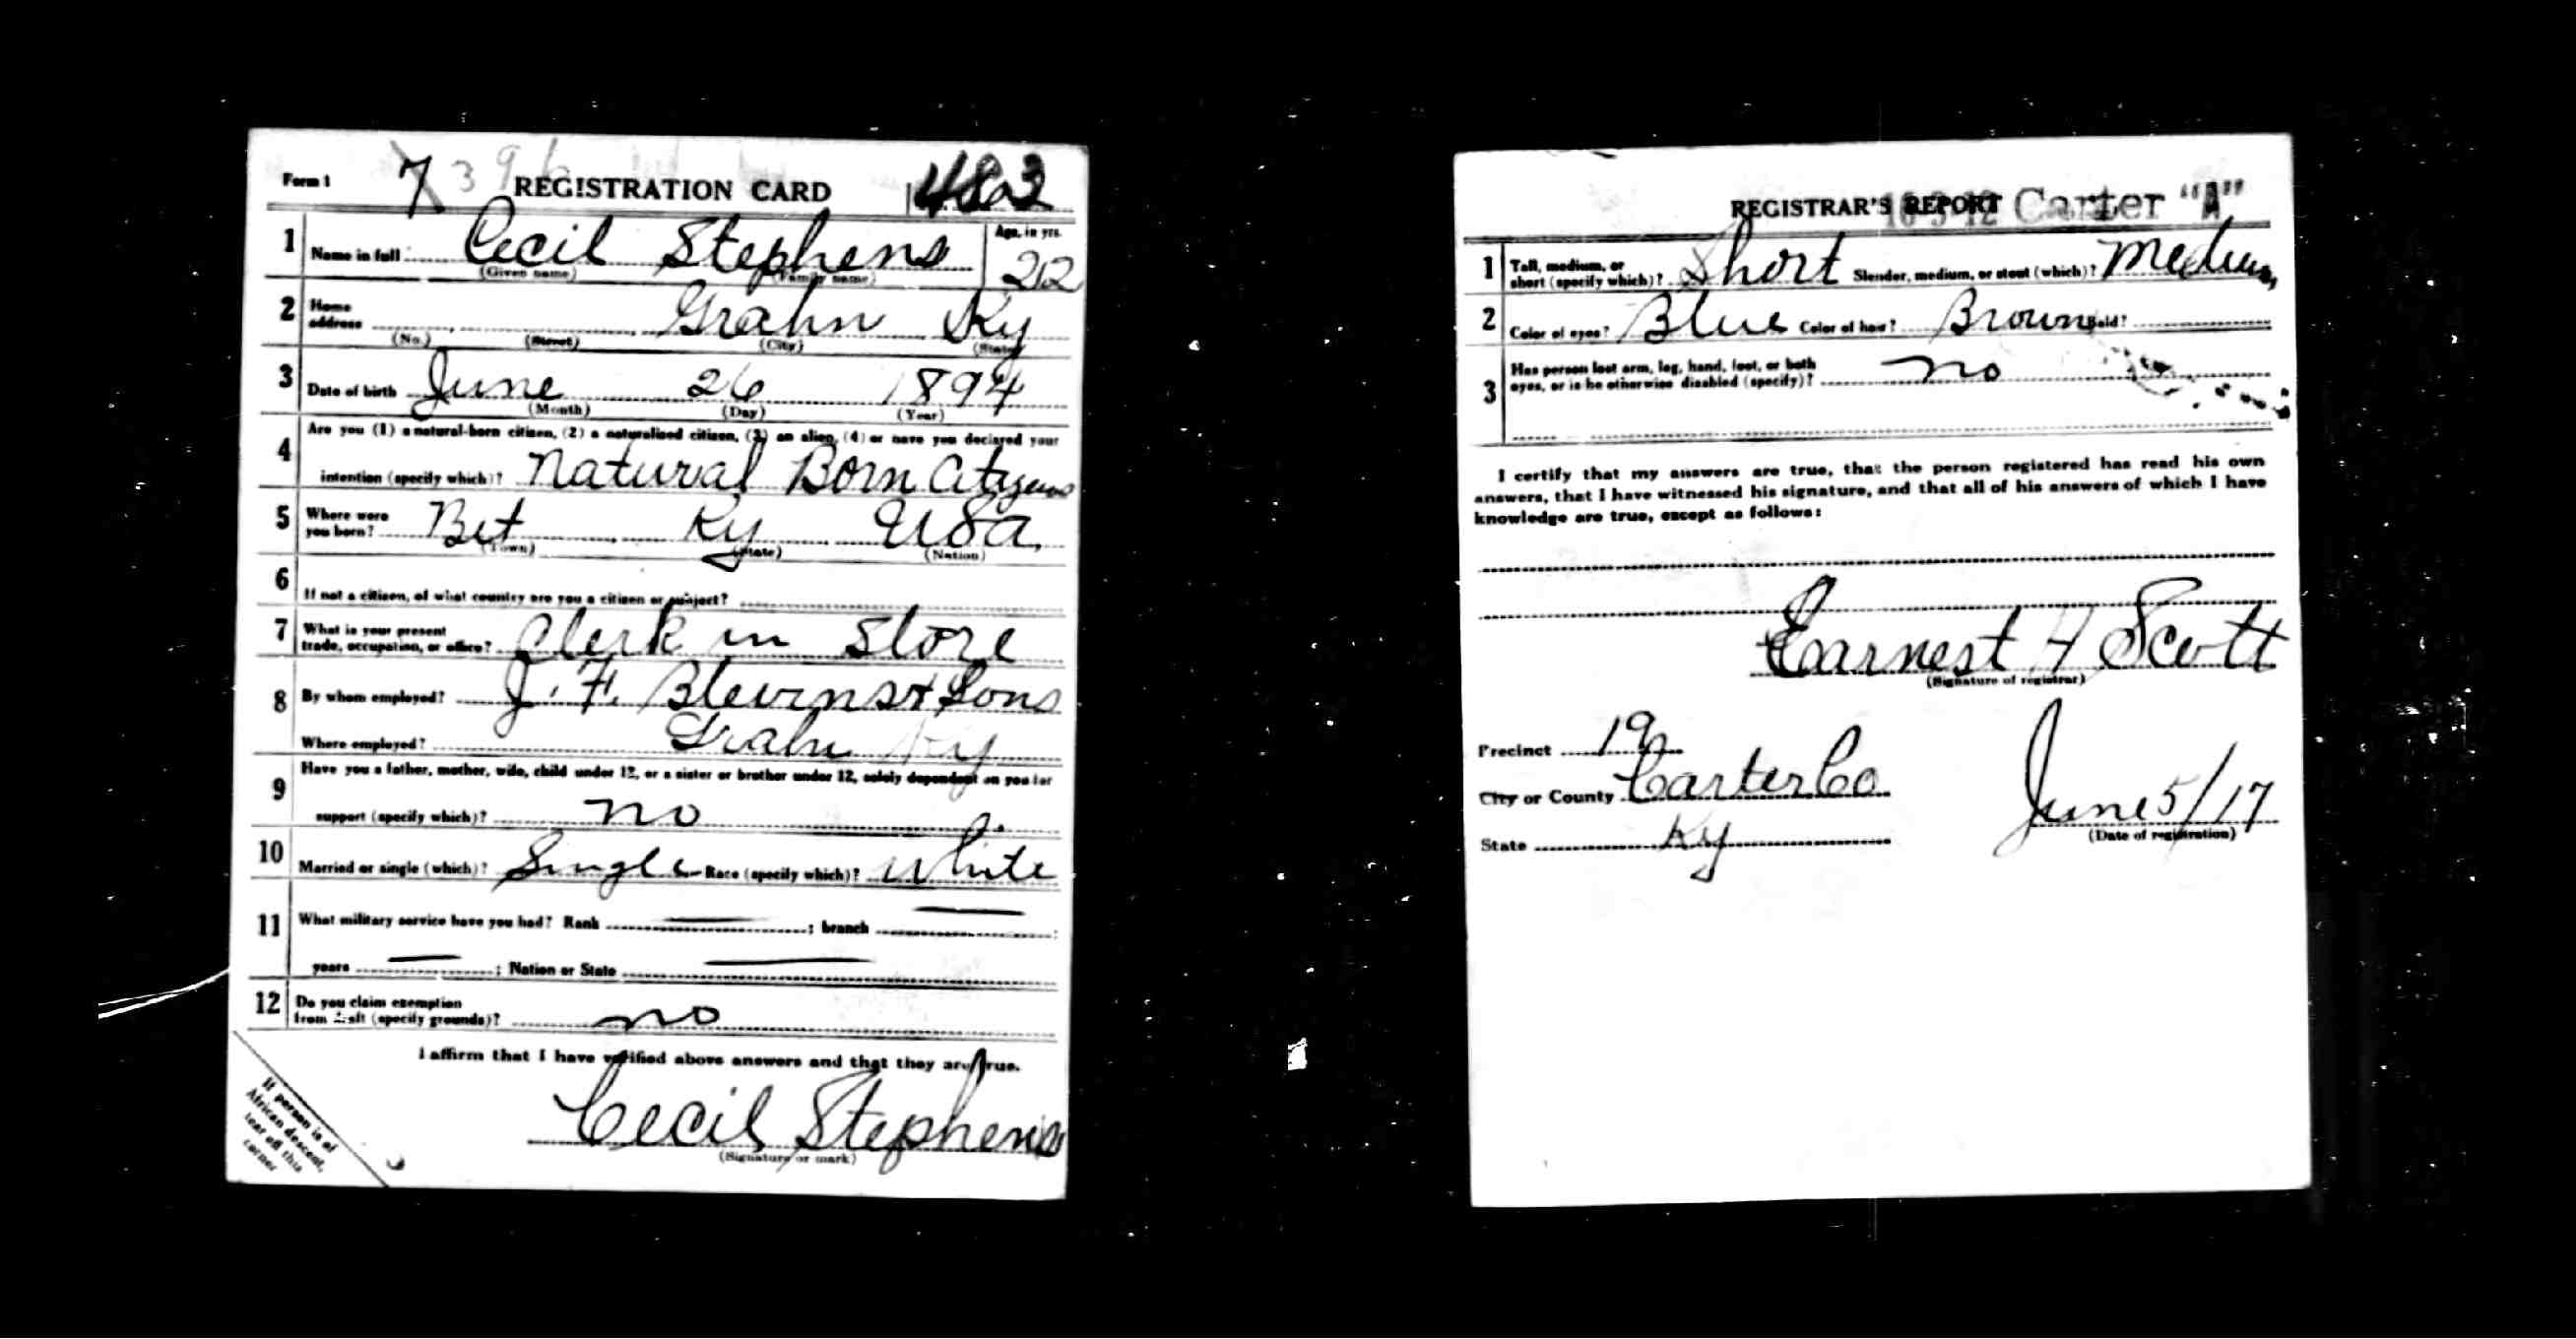 Form 1 7 396 REGISTRATION CARD 483
1 Name in full Cecil Stephens Age, in yrs. 22
(Given name) (Family name)
2 Home address Grahn Ky
(No.) (Street) (City) (State)
3 Date of birth June 26 1894
(Month) (Day) (Year)
4 Are you (1) a natural-born citizen, (2) a naturalized citizen, (3) an alien, (4) or have you declared your
intention (specify which)? Natural Born Citizen
5 Where were you born? Bet Ky USa
(Town) (State) (Nation)
6 If not a citizen, of what country are you a citizen or subject?
7 What is your present trade, occupation, or office? Clerk in Store
8 By whom employed? J. F. Blevins & Sons
Where employed? Grahn Ky
9 Have you a father, mother, wife, child under 12, or a sister or brother under 12, solely dependent on you for
support (specify which)? no
10 Married or single (which)? Single Race (specify which)? White
11 What military service have you had? Rank ; branch
years ; Nation or State
12 Do you claim exemption from draft (specify grounds)? no
I affirm that I have verified above answers and that they are true.
Cecil Stephens
(Signature or mark)
If person is of
African descent,
tear off this
corner
REGISTRAR'S REPORT Carter "A"
1 Tall, medium, or short (specify which)? Short Slender, medium, or stout (which)? Medium
2 Color of eyes? Blue Color of hair? Brown Bald?
3 Has person lost arm, leg, hand, foot, or both
eyes, or is he otherwise disabled (specify)? no
I certify that my answers are true, that the person registered has read his own
answers, that I have witnessed his signature, and that all of his answers of which I have
knowledge are true, except as follows:
Earnest H Scott
(Signature of registrar)
Precinct 19
City or County Carter Co
State Ky
June 5/17
(Date of registration)